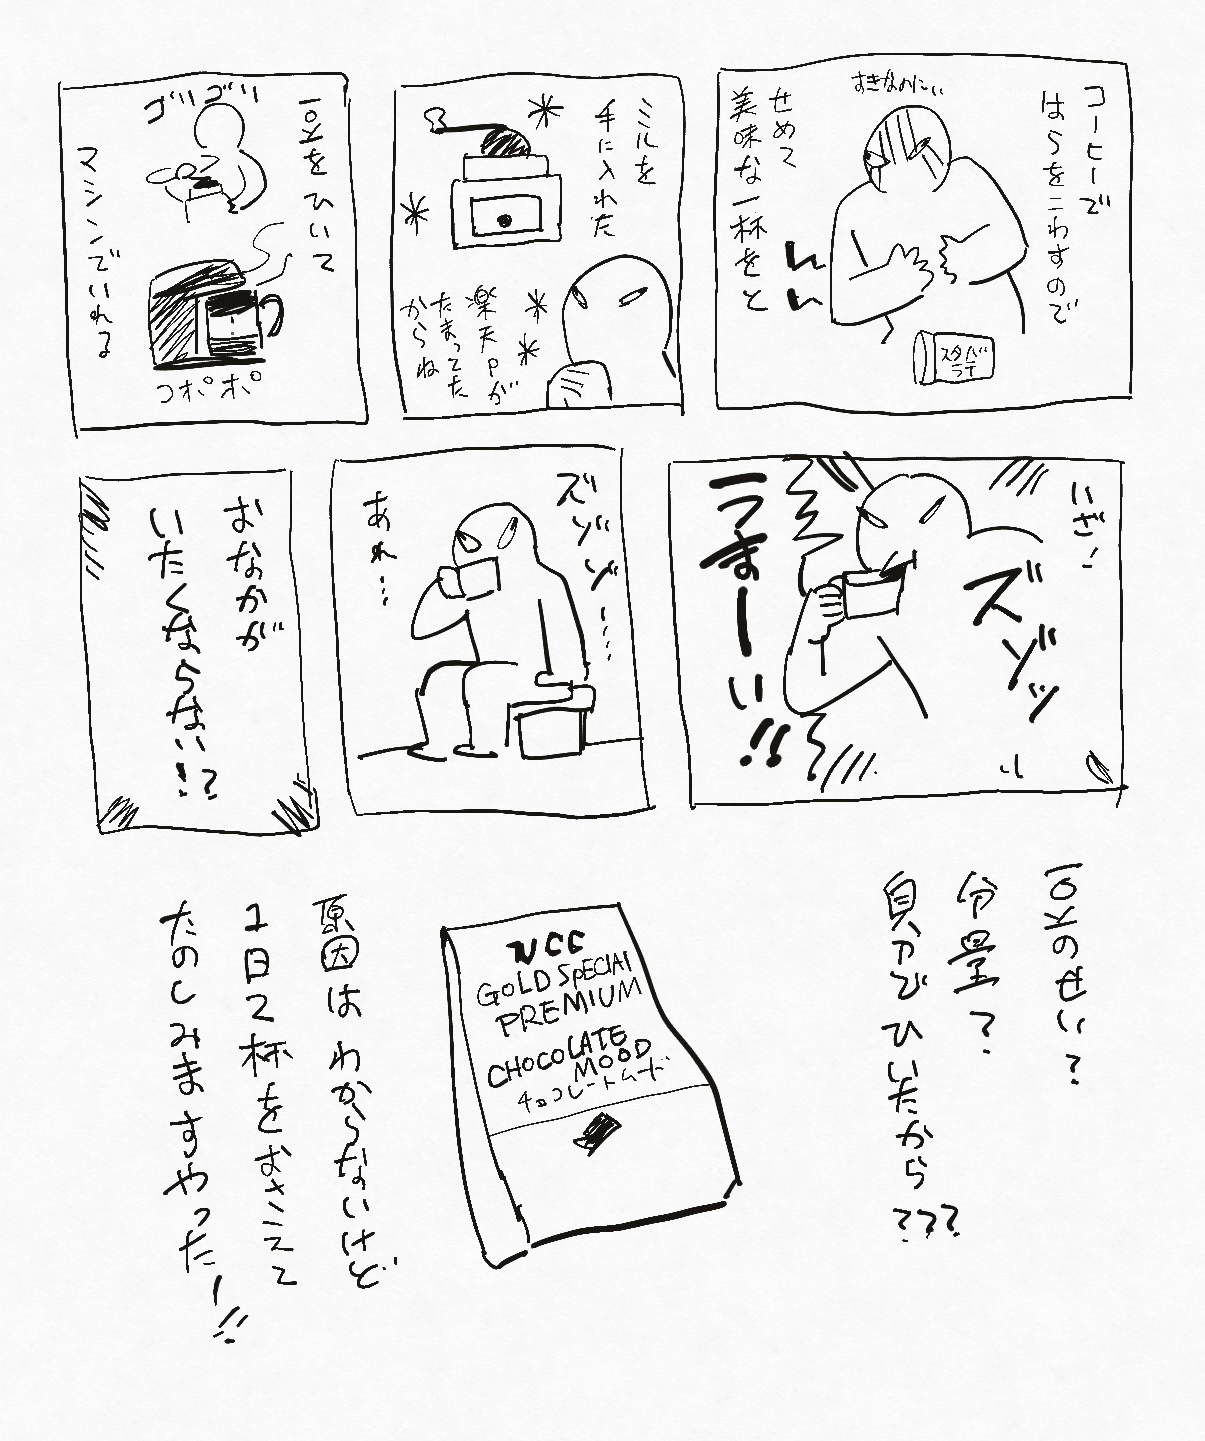 コーヒーで
はらをこわすので
すきなのに…
せめて
美味な一杯をと
スタバ
ラテ
ミルを
手に入れた
楽天Pが
たまってた
からね
豆をひいて
ゴリゴリ
マシンでいれる
コポポポ
いざ!
ズゾゾッ
うまーい!!
ズゾゾ……
あれ…
おなかが
いたくならない!?
豆のせい?
分量?
自分でひいたから???
UCC
GOLD SPECIAL
PREMIUM
CHOCOLATE
MOOD
チョコレートムード
原因はわからないけど
1日2杯をおさえて
たのしみますやったー!!